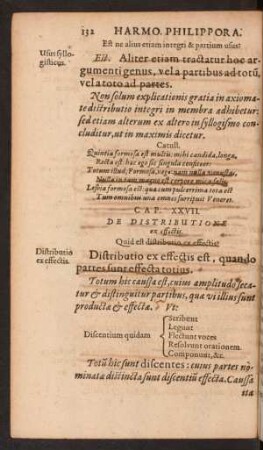 132 HARMO. PHILIPPORA.
Est ne alius etiam integri & partium usus?
Usus syllogisticus.
Est. Aliter etiam tractatur hoc argumenti genus, vel a partibus ad totū,
vel a toto ad partes.
Non solum explicationis gratia in axiomate distributio integri in membra adhibetur:
sed etiam alterum ex altero in syllogismo concluditur, ut in maximis dicetur.
Catull.
Quintia formosa est multis: mihi candida, longa,
Recta est. hac ego sic singula confiteor:
Totum illud, Formosa, nego: nam nulla venustas,
Nulla in tam magno est corpore mica salis.
Lesbia formosa est: quæ cum pulcerrima tota est
Tum omnibus una omnes surripuit Veneres.
CAP. XXVII.
DE DISTRIBUTIONE
ex effectis.
Quid est distributio ex effectis?
Distributio ex effectis.
Distributio ex effectis est, quando
partes sunt effecta totius.
Totum hic caussa est, cuius amplitudo secatur & distinguitur partibus, qua vi illius sunt
producta & effecta. Vt:
Discentium quidam
Scribunt
Legunt
Flectunt voces
Resolvunt orationem.
Componunt, &c.
Totū hic sunt discentes: cuius partes nominatæ distincta sunt discentiū effecta. Caussa